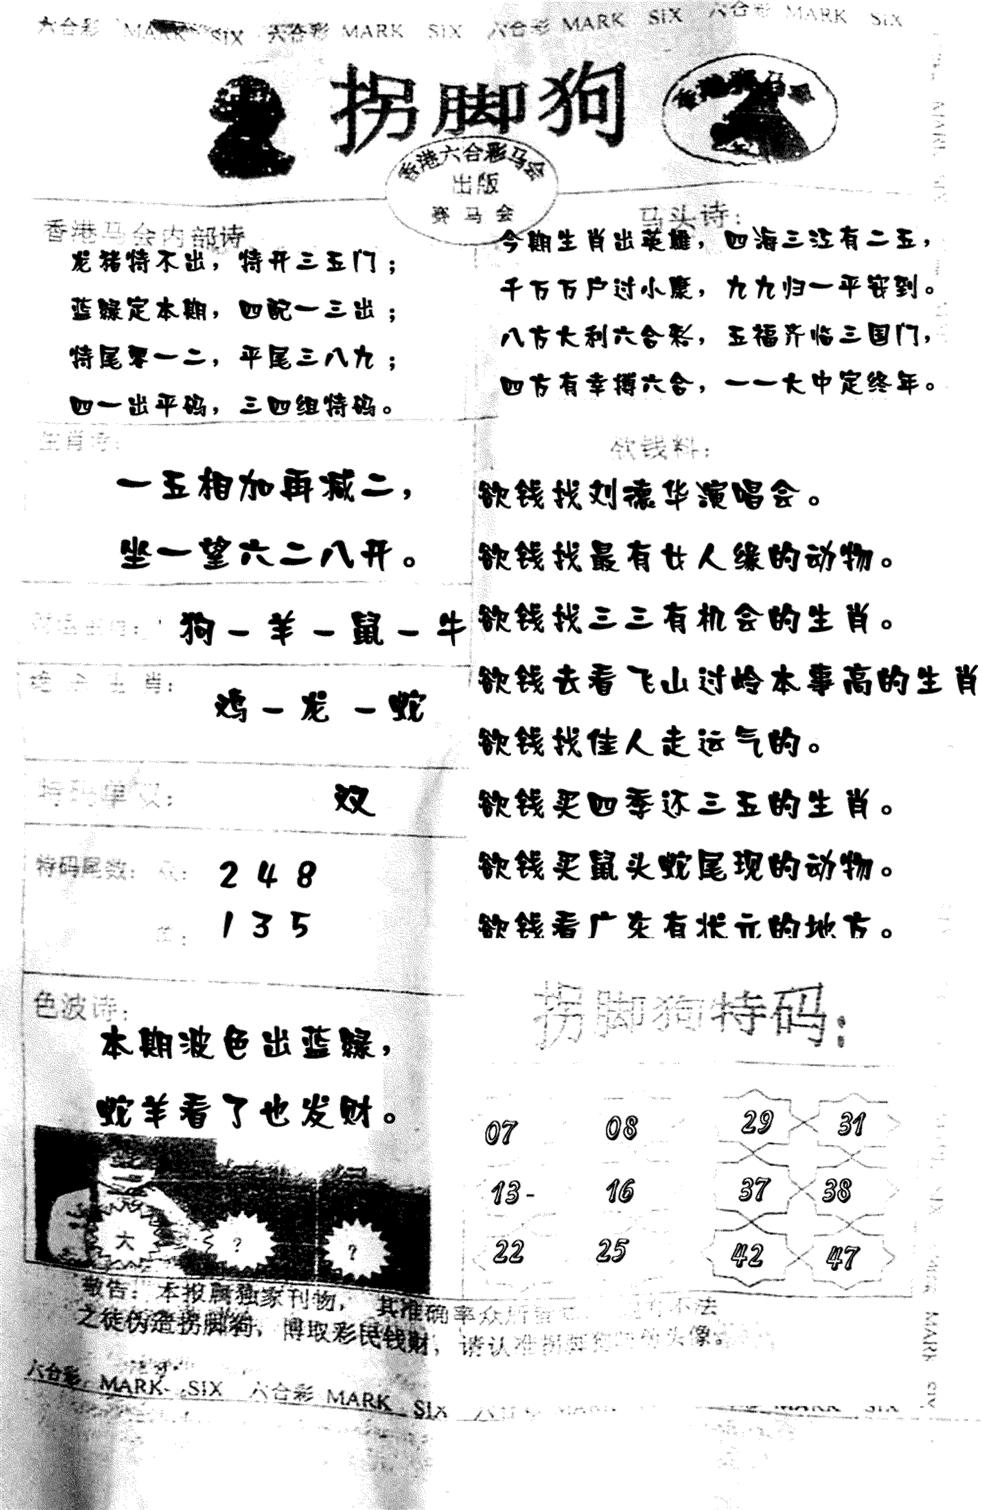 六合彩 MARK SIX 六合彩 MARK SIX 六合彩 MARK SIX 六合彩 MARK SIX
拐脚狗
香港赛马会
香港六合彩马会
出版
赛马会
香港马会内部诗
龙猪特不出，特开三五门；
蓝绿定本期，四配一三出；
特尾零一二，平尾三八九；
四一出平码，三四组特码。
马头诗：
今期生肖出英雄，四海三江有二五，
千万万户过小康，九九归一平安到。
八方大利六合彩，五福齐临三国门，
四方有幸搏六合，一一大中定终年。
生肖诗：
一五相加再减二，
坐一望六二八开。
狗－羊－鼠－牛
绝杀生肖：
鸡－龙－蛇
特码单双：
双
特码尾数：双：
2 4 8
单：
1 3 5
色波诗：
本期波色出蓝绿，
蛇羊看了也发财。
大 ? ?
欲钱料：
欲钱找刘德华演唱会。
欲钱找最有女人缘的动物。
欲钱找三三有机会的生肖。
欲钱去看飞山过岭本事高的生肖
欲钱找佳人走运气的。
欲钱买四季还三五的生肖。
欲钱买鼠头蛇尾现的动物。
欲钱看广东有状元的地方。
拐脚狗特码：
07 08 29 31
13- 16 37 38
22 25 42 47
敬告：本报属独家刊物，其准确率众所 不法
之徒伪造拐脚狗，博取彩民钱财，请认准拐脚狗 头像。
六合彩 MARK SIX 六合彩 MARK SIX 六合彩 MARK SIX
MARK SIX